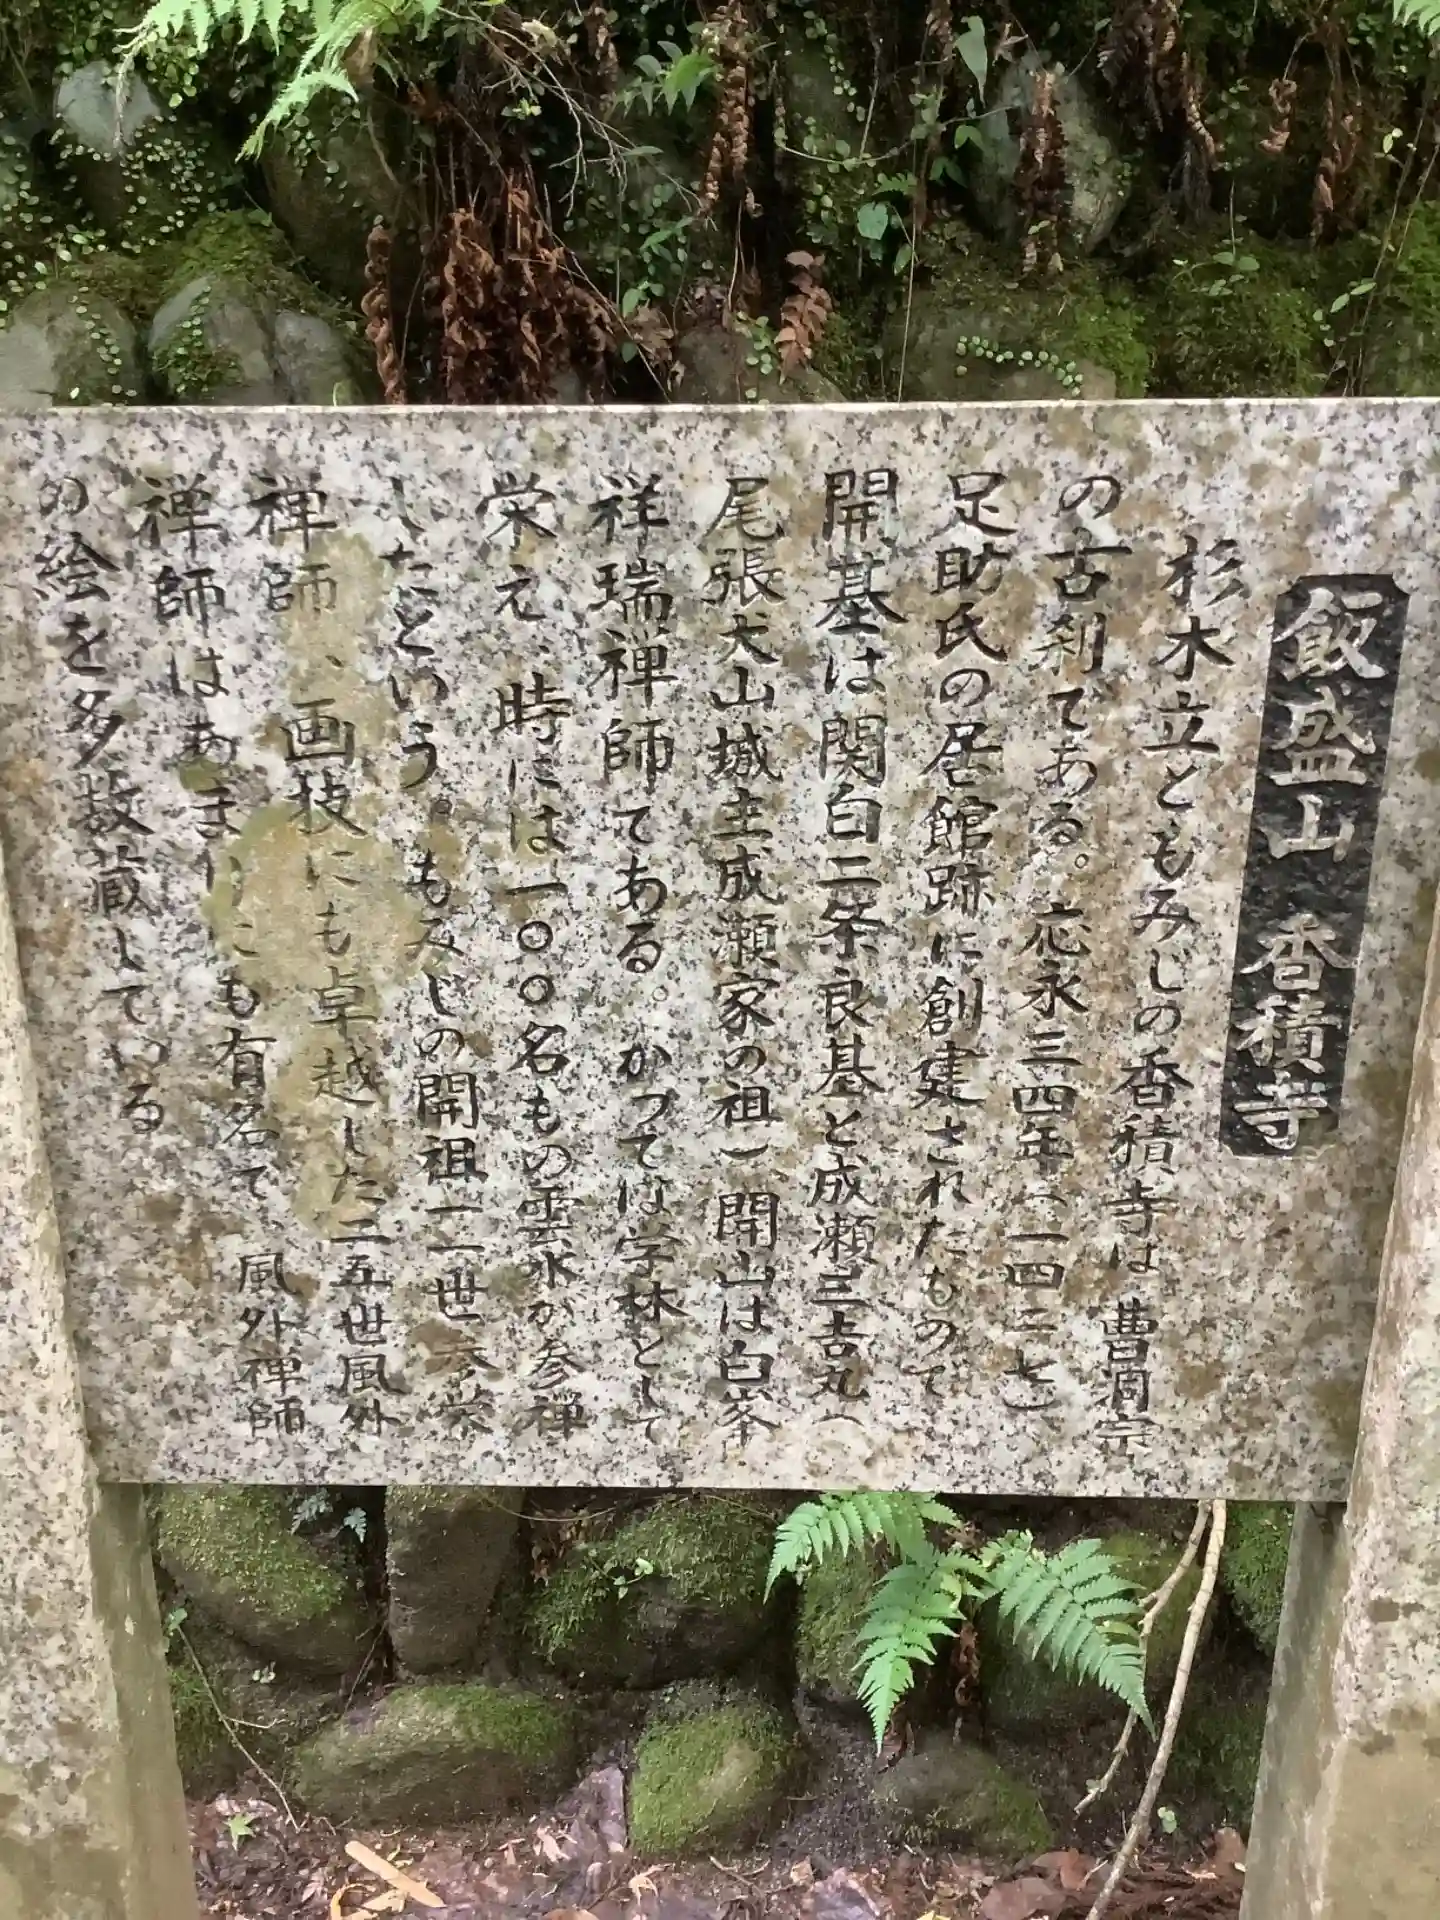 飯盛山 香積寺
杉木立ともみじの香積寺は 曹洞宗
の古刹である。応永三四年(一四二七)
足助氏の居館跡に創建されたもので
開基は関白二条良基と成瀬三吉丸(
尾張犬山城主成瀬家の祖)開山は白峯
祥瑞禅師である。かつては学林として
栄え、時には一〇〇名もの雲水が参禅
したという。もみじの開祖一一世参栄
禅師、画技にも卓越した二五世風外
禅師はあまりにも有名で、風外禅師
の絵を多数蔵している